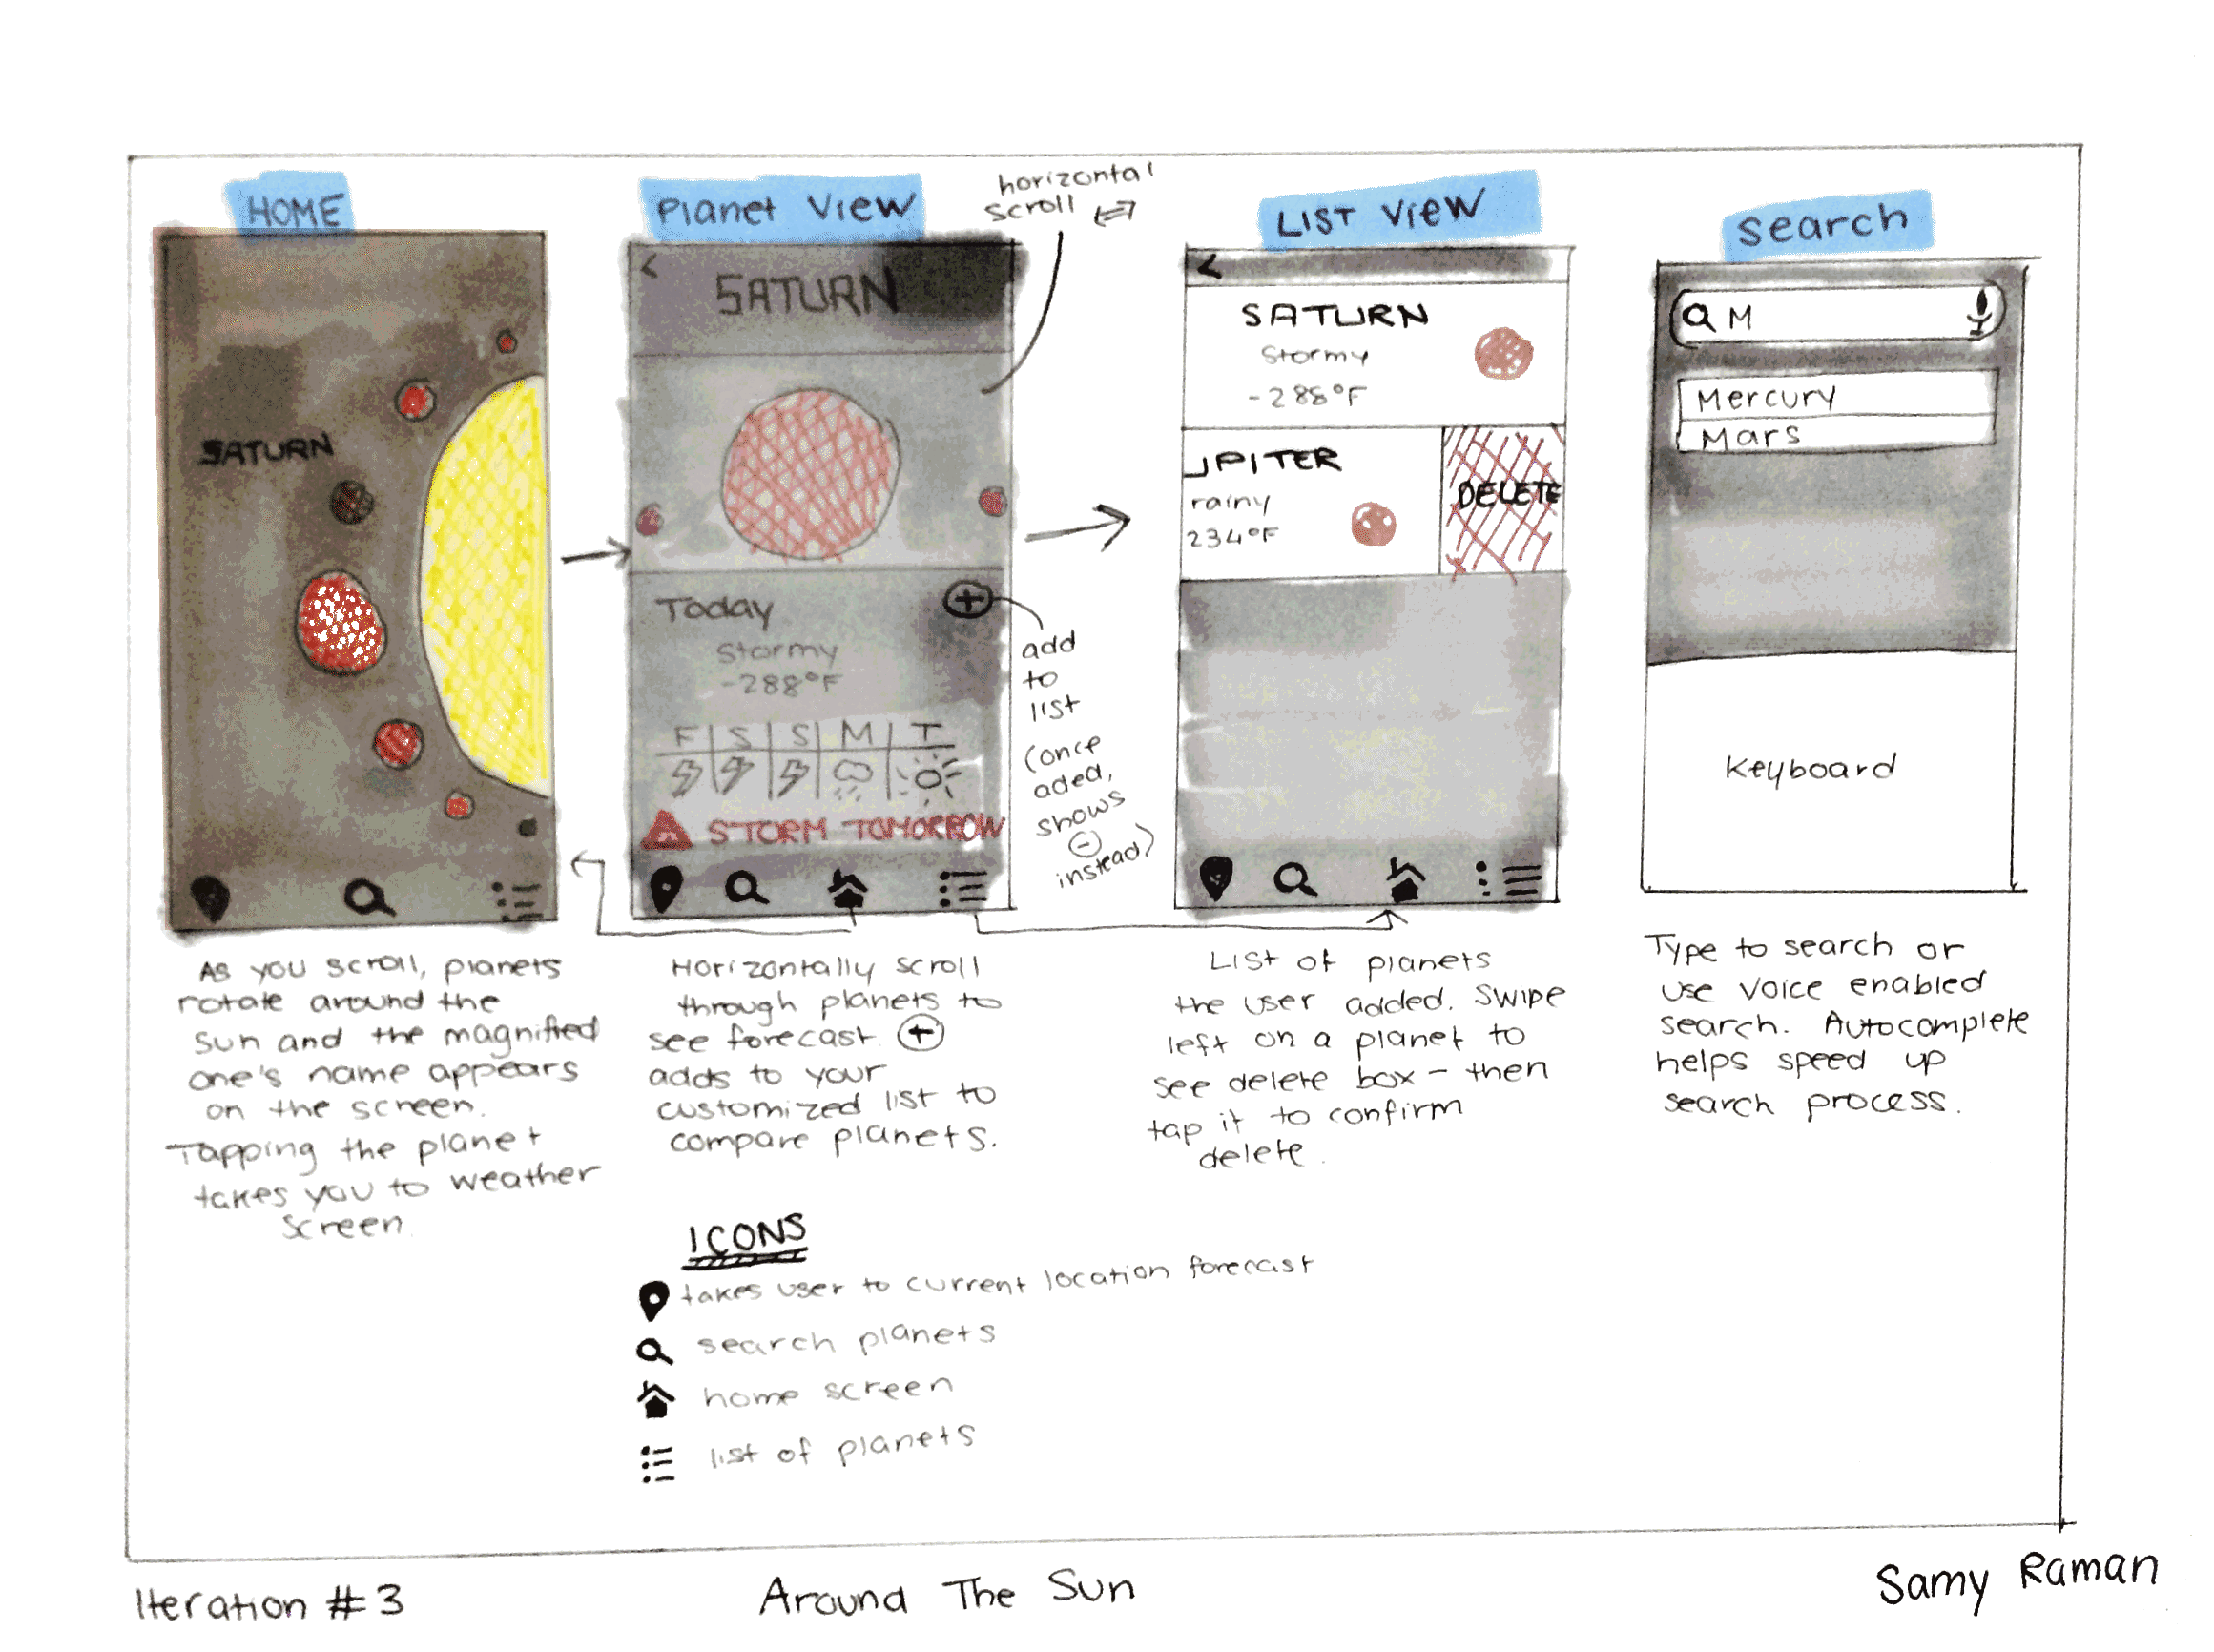 HOME
SATURN
As you scroll, planets
rotate around the
sun and the magnified
one's name appears
on the screen.
Tapping the planet
takes you to weather
screen.
Planet View
horizontal
scroll
<
SATURN
Today
Stormy
-288°F
F | S | S | M | T
STORM TOMORROW
add
to
list
(once
aded,
shows
⊖
instead)
Horizontally scroll
through planets to
see forecast. ⊕
adds to your
customized list to
compare planets.
LIST VIEW
<
SATURN
Stormy
-288°F
JPITER
rainy
234°F
DELETE
List of planets
the user added. Swipe
left on a planet to
see delete box - then
tap it to confirm
delete.
search
M
Mercury
Mars
Keyboard
Type to search or
use voice enabled
search. Autocomplete
helps speed up
search process.
ICONS
takes user to current location forecast
search planets
home screen
list of planets
Iteration #3
Around The Sun
Samy Raman